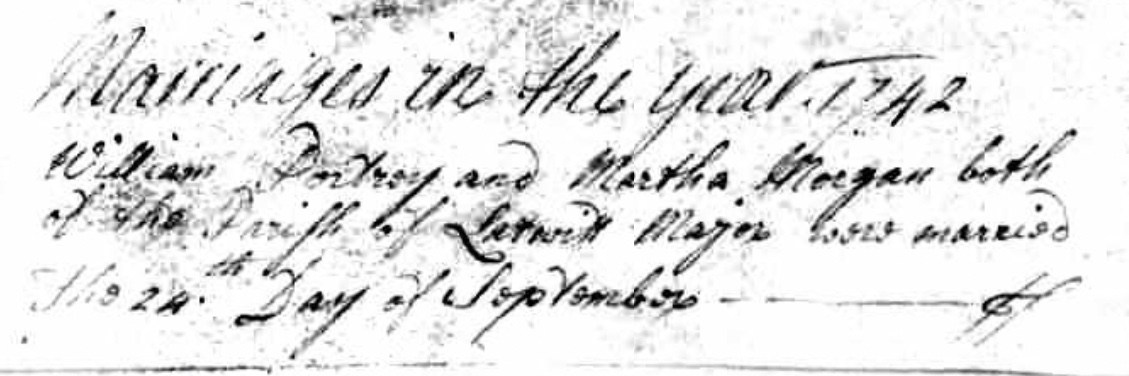 Marriages in the year 1742
William Portrey and Martha Morgan both
of the Parish of Lantwitt Major were married
The 24.th Day of September